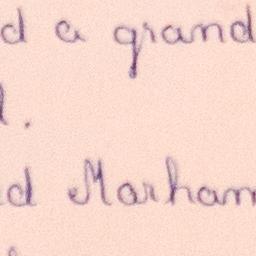 d a grand
.
d Marham